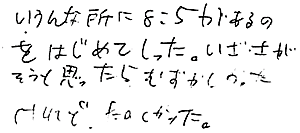 いろんな所に8こ5かがあるの
をはじめてしった。いざさが
そうと思ったらむずかしかった
けれど、たのしかった。